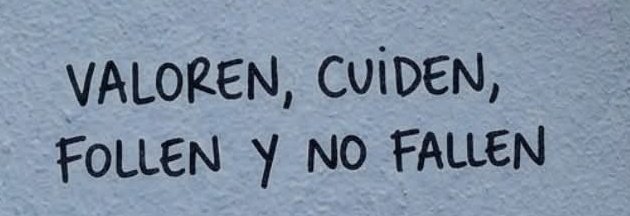 VALOREN, CUIDEN,
FOLLEN Y NO FALLEN